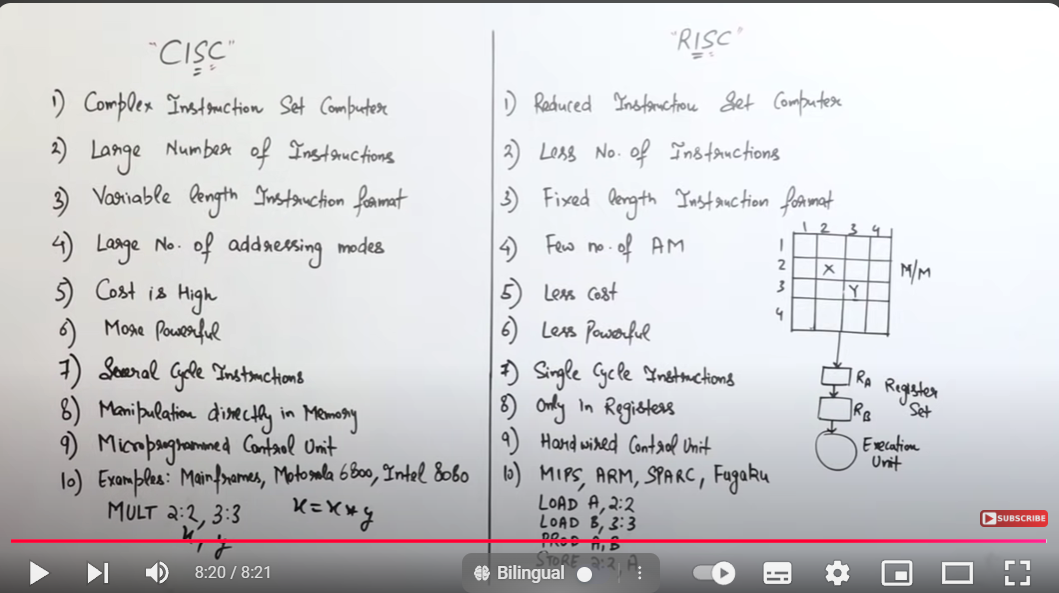 "CISC"
1) Complex Instruction Set Computer
2) Large Number of Instructions
3) Variable length Instruction format
4) Large No. of addressing modes
5) Cost is High
6) More Powerful
7) Several Cycle Instructions
8) Manipulation directly in Memory
9) Microprogrammed Control Unit
10) Examples: Mainframes, Motorola 6800, Intel 8080
MULT 2:2, 3:3
x = x * y
x, y
"RISC"
1) Reduced Instruction Set Computer
2) Less No. of Instructions
3) Fixed length Instruction format
4) Few no. of AM
5) Less Cost
6) Less Powerful
7) Single Cycle Instructions
8) Only In Registers
9) Hardwired Control Unit
10) MIPS, ARM, SPARC, Fugaku
LOAD A, 2:2
LOAD B, 3:3
PROD A, B
STORE 2:2, A
1 2 3 4
1
2 X
3 Y
4
M/M
RA
RB
Register
Set
Execution
Unit
SUBSCRIBE
8:20 / 8:21
Bilingual